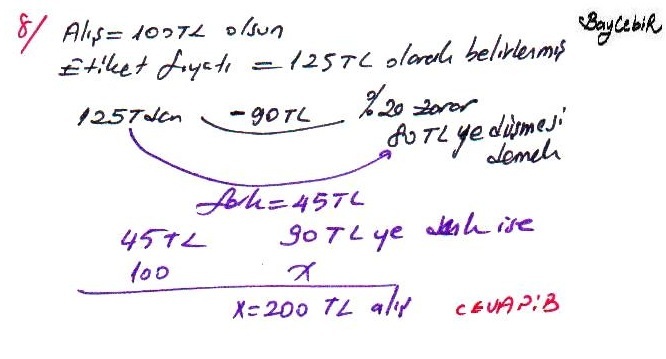 BayCebiR
8/ Alış=100TL olsun
Etiket fiyatı =125TL olarak belirlenmiş
125TLden -90TL %20 zarar
80 TL ye düşmesi
demek
fark=45TL
45TL 90TL ye denk ise
100 x
x=200 TL alış CEVAP:B